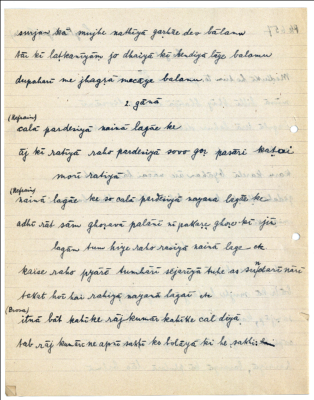 surjan kā mujhe nathiyā garhre deo bālanu
tār kī latkanīyām jo dhaiyā kī kendiyā lāge balamu
dupaharī me jhagṛā macāye balamu.
2. gānā
(Refrain)
calā pardesiyā nainā lagāe ke
āj kī ratiyā raho pardesiyā sovo goṛ pasārī kaṭaai
morī ratiyā
(Refrain)
nainā lagāe ke so calā pardesiyā nayanā lagāe ke
adhī rāt sām ghoṛavā palānī ni pakkaṛe ghoṛo kī jīn
lagām tum hiye raho rasiyā nainā lage
kaise raho pyārā tumhārī sejariyā tuhe as sundarī nārī
taket hoī hai rahiyā nayanā lagāī
(Prose)
itnā bāt kahike rāj kumār kahike cal diyā
tab rāj kumārī ne apnī sakhī ko bolāyā ki he sakhi